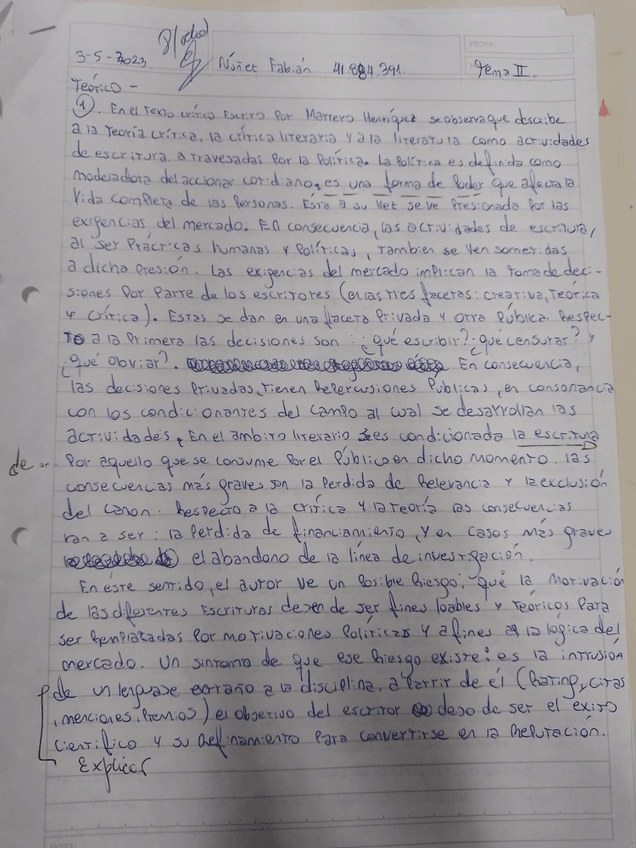 8 (ocho)
FECHA:
3-5-2023 Núñez Fabián 41.884.391. Tema II.
Teórico -
1. En el texto crítico Escrito Por Marrero Henríquez se observa que describe
a la Teoría crítica, la crítica literaria y a la literatura como actividades
de escritura, atravesadas Por la Política. La Política es definida como
moderadora del accionar cotidiano, es una forma de Poder que afecta la
Vida completa de las Personas. Esta a su vez se ve Presionada Por las
exigencias del mercado. En consecuencia, las actividades de escritura,
al ser Prácticas humanas y Políticas, también se ven sometidas
a dicha Presión. Las exigencias del mercado implican la toma de deci-
siones Por Parte de los escritores (en las tres facetas: creativa, Teórica
y crítica). Estas se dan en una faceta Privada y otra Pública. Respec-
to a la Primera las decisiones son: ¿qué escribir? ¿qué censurar? y
¿qué obviar?. En consecuencia,
las decisiones Privadas, tienen Repercusiones Publicas, en consonancia
con los condicionantes del campo al cual se desarrollan las
actividades. En el ambito literario es condicionada la escritura
de Por aquello que se consume Por el Público en dicho momento. las
consecuencias más graves son la Perdida de Relevancia y la exclusión
del canon. Respecto a la crítica y la teoría las consecuencias
van a ser: la Perdida de financiamiento, y en casos más grave
el abandono de la línea de investigación.
En éste sentido, el autor ve un Posible Riesgo, que la motivación
de las diferentes Escrituras dejen de ser fines loables y Teóricos Para
ser Remplazadas Por motivaciones Políticas y afines a la lógica del
mercado. Un sintoma de que ese Riesgo existe: es la intrusión
de un lenguaje extraño a la disciplina, a Partir de él (Rating, citas
, menciones, Premios) el objetivo del escritor dejo de ser el exito
Científico y su Refinamiento Para convertirse en la Reputación.
Explicar